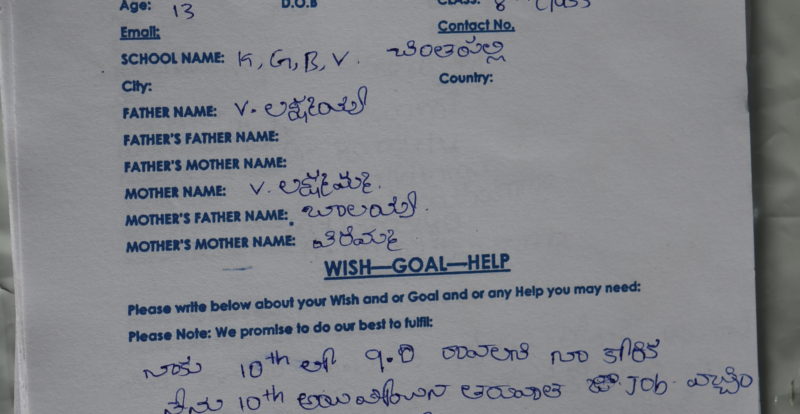 Age: 13 D.O.B CLASS: 8th Class
Email: Contact No.
SCHOOL NAME: K, G, B, V. చింతపల్లి
City: Country:
FATHER NAME: V. లక్ష్మయ్య
FATHER'S FATHER NAME:
FATHER'S MOTHER NAME:
MOTHER NAME: V. లక్ష్మమ్మ.
MOTHER'S FATHER NAME: బాలయ్య.
MOTHER'S MOTHER NAME:
WISH—GOAL—HELP
Please write below about your Wish and or Goal and or any Help you may need:
Please Note: We promise to do our best to fulfil:
నాకు 10th లో 9.0 రావాలని నా కోరిక
నేను 10th అయిపోయిన తరువాత Job